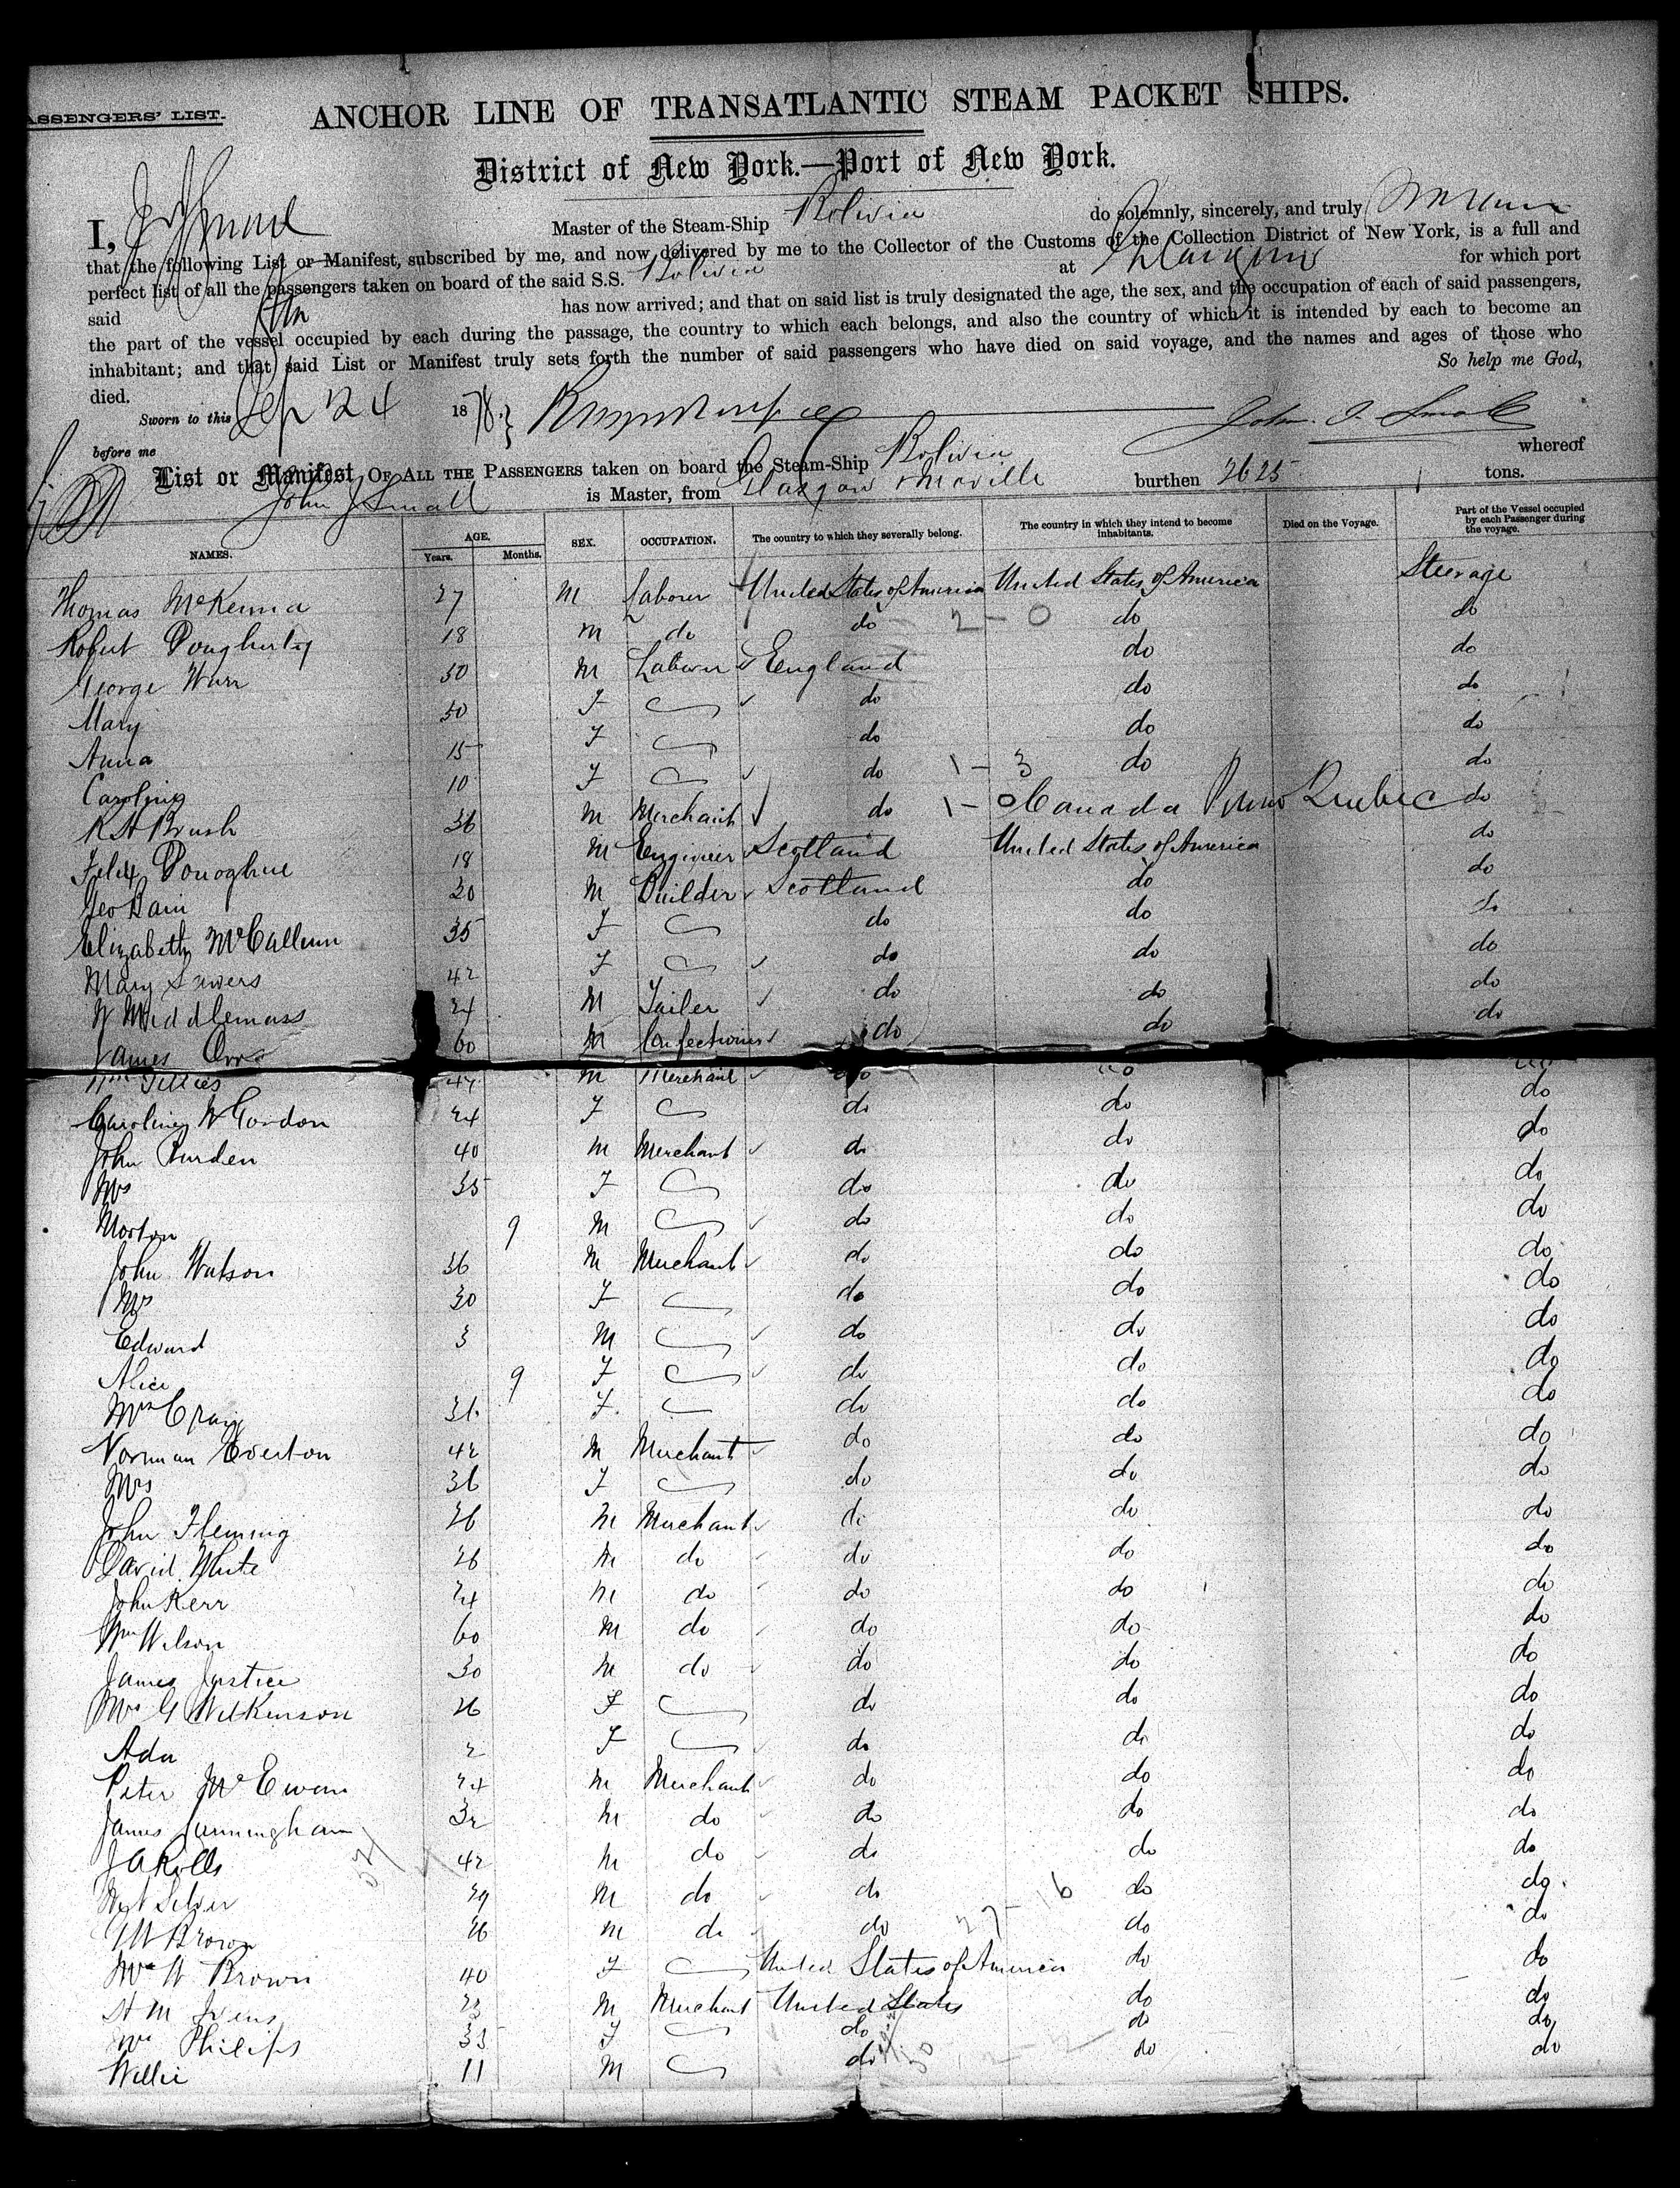 PASSENGERS' LIST.
ANCHOR LINE OF TRANSATLANTIC STEAM PACKET SHIPS.
District of New York.—Port of New York.
I, Master of the Steam-Ship Bolivia do solemnly, sincerely, and truly
that the following List or Manifest, subscribed by me, and now delivered by me to the Collector of the Customs of the Collection District of New York, is a full and
perfect list of all the passengers taken on board of the said S.S. Bolivia at Glasgow for which port
said has now arrived; and that on said list is truly designated the age, the sex, and the occupation of each of said passengers,
the part of the vessel occupied by each during the passage, the country to which each belongs, and also the country of which it is intended by each to become an
inhabitant; and that said List or Manifest truly sets forth the number of said passengers who have died on said voyage, and the names and ages of those who
died. So help me God,
Sworn to this Sep 24 1878. John J. Small
before me
List or Manifest OF ALL THE PASSENGERS taken on board the Steam-Ship Bolivia whereof
John J Small is Master, from Glasgow Moville burthen 2625 tons.
NAMES. AGE. Years. Months. SEX. OCCUPATION. The country to which they severally belong. The country in which they intend to become inhabitants. Died on the Voyage. Part of the Vessel occupied by each Passenger during the voyage.
Thomas McKenna 27 M Laborer United States of America United States of America Steerage
Robert Dougherty 18 M do do do do
George Warr 50 M Laborer England do do
Mary 50 F do do do
Anna 15 F do do do
Caroline 10 F do do do
R H Brush 36 M Merchant do Canada Quebec do
Felix Donoghue 18 M Engineer Scotland United States of America do
Geo Bain 20 M Builder Scotland do do
Elizabeth McCallum 35 F do do do
Mary 42 F do do do
W Middlemass 24 M Tailer do do do
James Orr 60 M Confectioner do do do
Wm Gillies 44 M Merchant do do do
Caroline W Gordon 24 F do do do
John Burden 40 M Merchant do do do
Mrs 35 F do do do
Morton 9 M do do do
John Watson 36 M Merchant do do do
Mrs 30 F do do do
Edward 3 M do do do
Alice 9 F do do do
Mrs Craig 36 F do do do
Norman Everton 42 M Merchant do do do
Mrs 36 F do do do
John Fleming 26 M Merchant do do do
David White 26 M do do do do
John Kerr 24 M do do do do
Wm Wilson 60 M do do do do
James Justice 30 M do do do do
Mrs G Wilkinson 26 F do do do
Ada 2 F do do do
Peter McEwan 24 M Merchant do do do
James Cunningham 32 M do do do do
J A Rolls 42 M do do do do
Silver 29 M do do do do
Brown 26 M do do do do
Mrs W Brown 40 F United States of America do do
H M Ivens 23 M Merchant United States do do
Mrs Philips 33 F do do do
Willie 11 M do do do